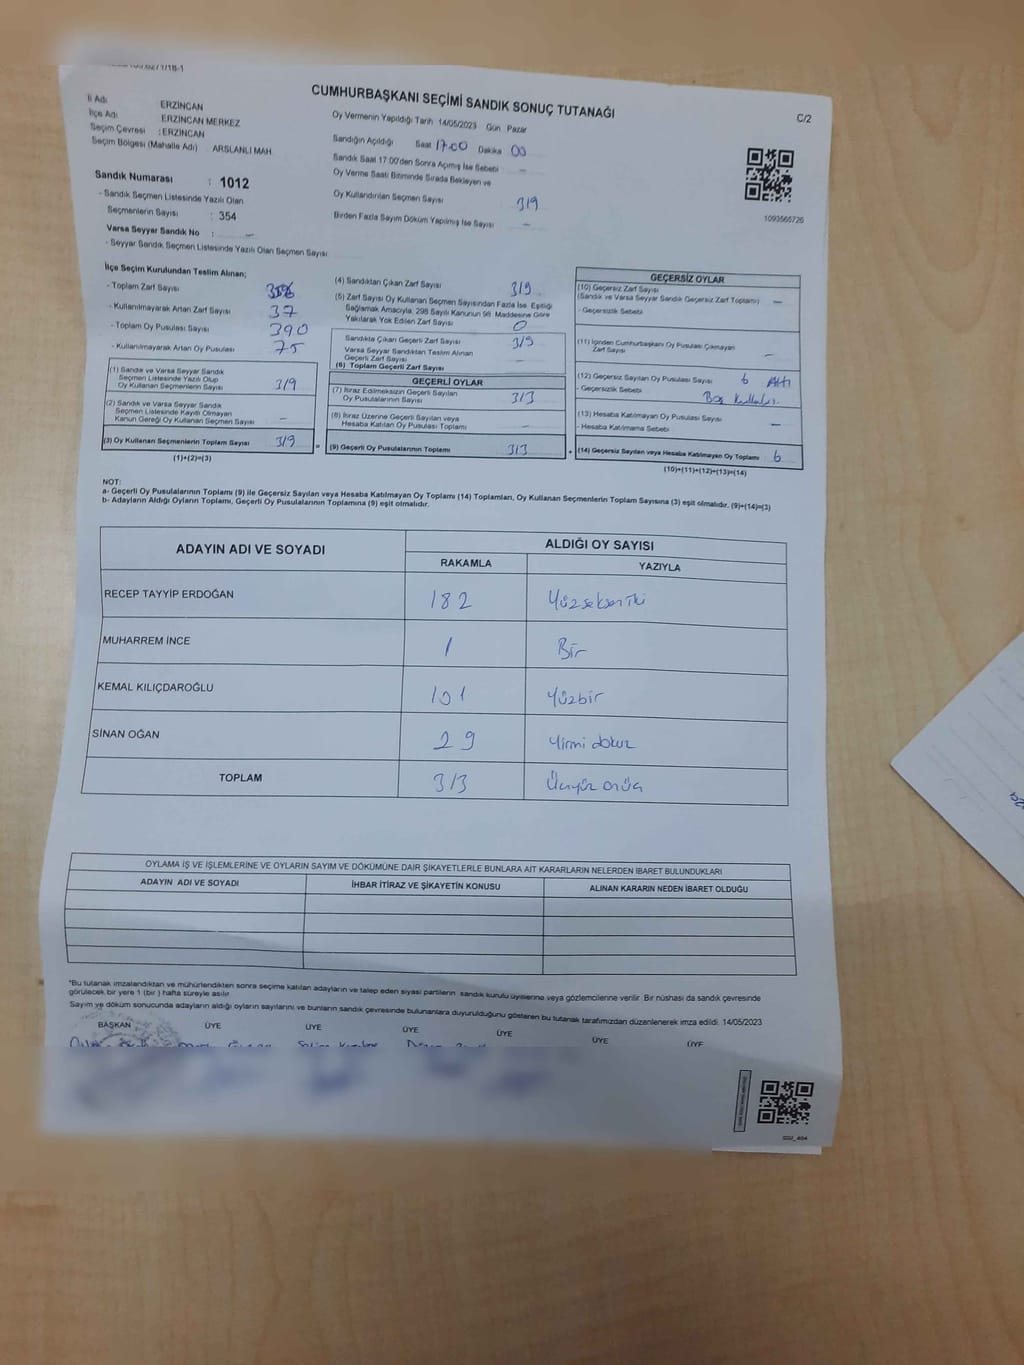 CUMHURBAŞKANI SEÇİMİ SANDIK SONUÇ TUTANAĞI
C/2
İl Adı ERZİNCAN
İlçe Adı ERZİNCAN MERKEZ
Seçim Çevresi : ERZİNCAN
Seçim Bölgesi (Mahalle Adı) ARSLANLI MAH
Sandık Numarası : 1012
- Sandık Seçmen Listesinde Yazılı Olan
Seçmenlerin Sayısı : 354
Varsa Seyyar Sandık No : -
- Seyyar Sandık Seçmen Listesinde Yazılı Olan Seçmen Sayısı
Oy Vermenin Yapıldığı Tarih 14/05/2023 Gün Pazar
Sandığın Açıldığı Saat 17:00 Dakika 00
Sandık Saat 17:00'den Sonra Açımış İse Sebebi -
Oy Verme Saati Bitiminde Sırada Bekleyen ve
Oy Kullandırılan Seçmen Sayısı 319
Birden Fazla Sayım Döküm Yapılmış İse Sayısı -
1093565726
İlçe Seçim Kurulundan Teslim Alınan;
- Toplam Zarf Sayısı
- Kullanılmayarak Artan Zarf Sayısı 37
- Toplam Oy Pusulası Sayısı 390
- Kullanılmayarak Artan Oy Pusulası 75
(1) Sandık ve Varsa Seyyar Sandık
Seçmen Listesinde Yazılı Olup
Oy Kullanan Seçmenlerin Sayısı 319
(2) Sandık ve Varsa Seyyar Sandık
Seçmen Listesinde Kayıtlı Olmayan
Kanun Gereği Oy Kullanan Seçmen Sayısı -
(3) Oy Kullanan Seçmenlerin Toplam Sayısı 319
(1)+(2)=(3)
(4) Sandıktan Çıkan Zarf Sayısı 319
(5) Zarf Sayısı Oy Kullanan Seçmen Sayısından Fazla İse, Eşitliği
Sağlamak Amacıyla, 298 Sayılı Kanunun 98. Maddesine Göre
Yakılarak Yok Edilen Zarf Sayısı 0
Sandıkta Çıkan Geçerli Zarf Sayısı 319
Varsa Seyyar Sandıktan Teslim Alınan
Geçerli Zarf Sayısı -
(6) Toplam Geçerli Zarf Sayısı
GEÇERLİ OYLAR
(7) İtiraz Edilmeksizin Geçerli Sayılan
Oy Pusulası Sayısı 313
(8) İtiraz Üzerine Geçerli Sayılan veya
Hesaba Katılan Oy Pusulası Toplamı -
= (9) Geçerli Oy Pusulalarının Toplamı 313
GEÇERSİZ OYLAR
(10) Geçersiz Zarf Sayısı
(Sandık ve Varsa Seyyar Sandık Geçersiz Zarf Toplamı) -
- Geçersizlik Sebebi
(11) İçinden Cumhurbaşkanı Oy Pusulası Çıkmayan
Zarf Sayısı -
(12) Geçersiz Sayılan Oy Pusulası Sayısı 6 Altı
- Geçersizlik Sebebi Boş
(13) Hesaba Katılmayan Oy Pusulası Sayısı -
- Hesaba Katılmama Sebebi
+ (14) Geçersiz Sayılan veya Hesaba Katılmayan Oy Toplamı 6
(10)+(11)+(12)+(13)=(14)
NOT:
a- Geçerli Oy Pusulalarının Toplamı (9) ile Geçersiz Sayılan veya Hesaba Katılmayan Oy Toplamı (14) Toplamları, Oy Kullanan Seçmenlerin Toplam Sayısına (3) eşit olmalıdır. (9)+(14)=(3)
b- Adayların Aldığı Oyların Toplamı, Geçerli Oy Pusulalarının Toplamına (9) eşit olmalıdır.
ADAYIN ADI VE SOYADI
ALDIĞI OY SAYISI
RAKAMLA YAZIYLA
RECEP TAYYİP ERDOĞAN 182 Yüzseksen iki
MUHARREM İNCE 1 Bir
KEMAL KILIÇDAROĞLU 101 Yüzbir
SİNAN OĞAN 29 Yirmi dokuz
TOPLAM 313 Üçyüz onüç
OYLAMA İŞ VE İŞLEMLERİNE VE OYLARIN SAYIM VE DÖKÜMÜNE DAİR ŞİKAYETLERLE BUNLARA AİT KARARLARIN NELERDEN İBARET BULUNDUKLARI
ADAYIN ADI VE SOYADI İHBAR İTİRAZ VE ŞİKAYETİN KONUSU ALINAN KARARIN NEDEN İBARET OLDUĞU
*Bu tutanak imzalandıktan ve mühürlendikten sonra seçime katılan adayların ve talep eden siyasi partilerin sandık kurulu üyelerine veya gözlemcilerine verilir. Bir nüshası da sandık çevresinde
görülecek bir yere 1 (bir) hafta süreyle asılır.
Sayım ve döküm sonucunda adayların aldığı oyların sayılarını ve bunların sandık çevresinde bulunanlara duyurulduğunu gösteren bu tutanak tarafımızdan düzenlenerek imza edildi. 14/05/2023
BAŞKAN ÜYE ÜYE ÜYE ÜYE ÜYE ÜYE